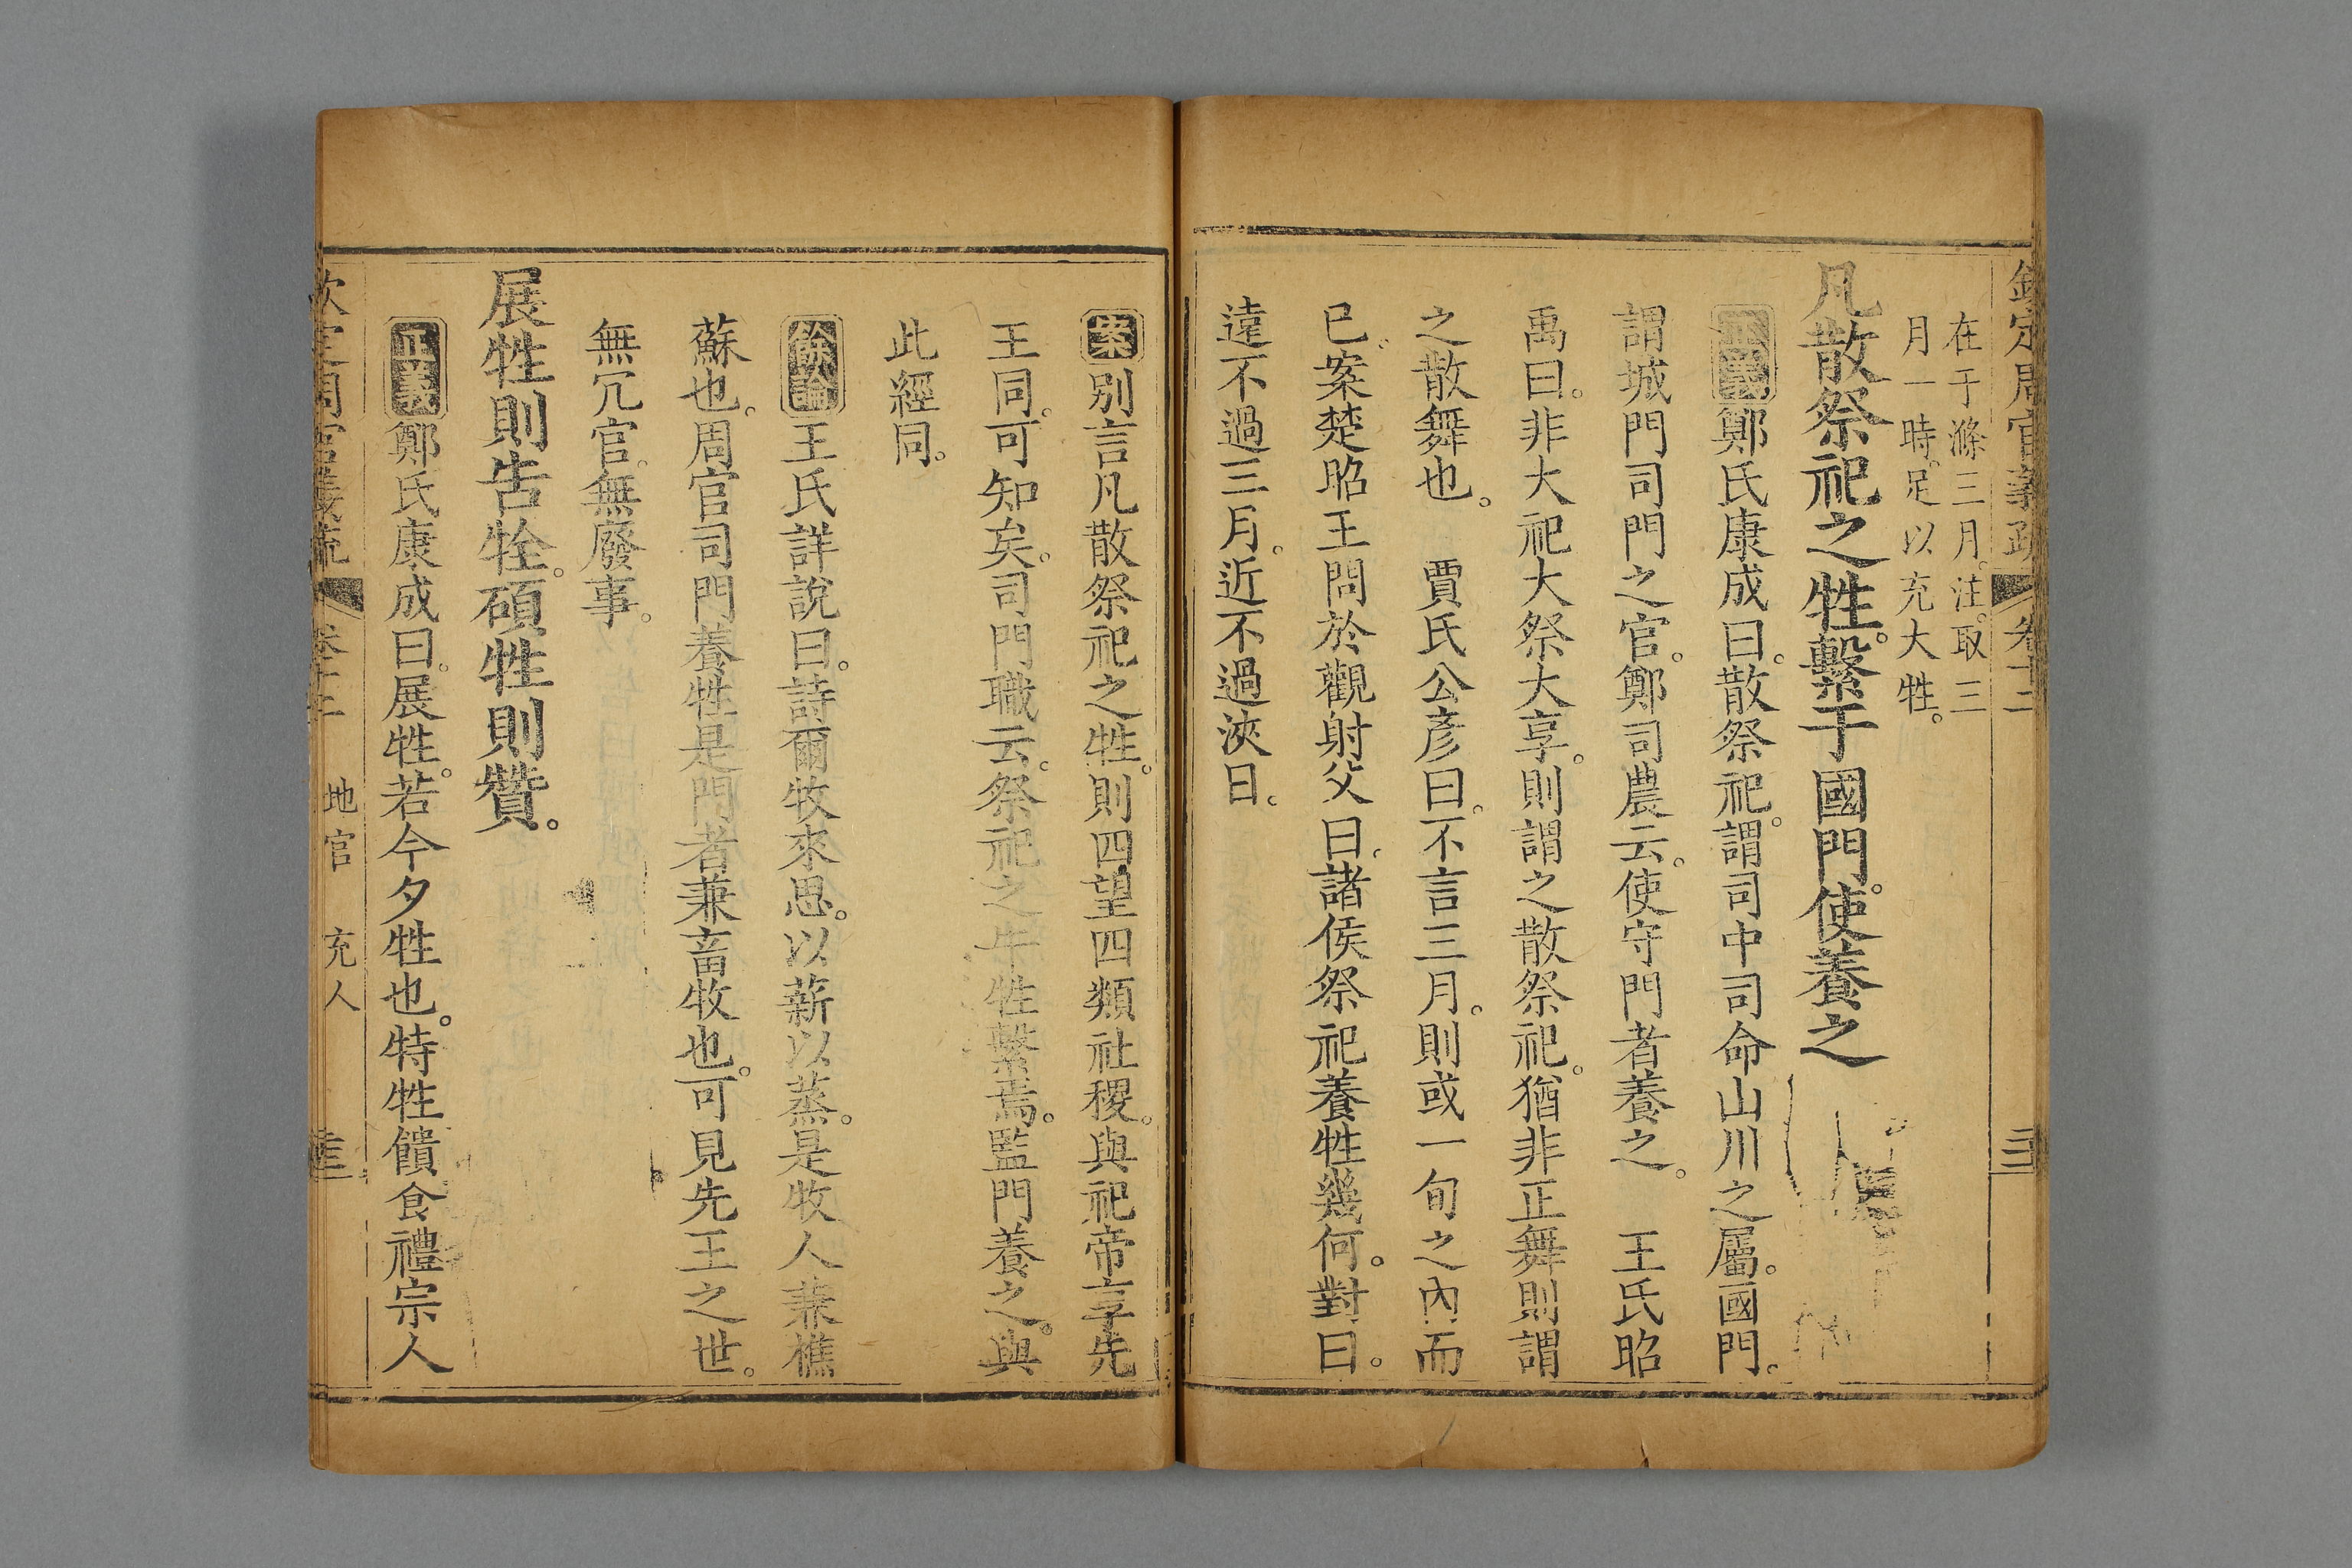 欽定周官義疏 卷十二 三
在于滌三月。注。取三
月一時。足以充大牲。
凡散祭祀之牲。繫于國門。使養之
正義鄭氏康成曰。散祭祀。謂司中司命山川之屬。國門。
謂城門司門之官。鄭司農云。使守門者養之。 王氏昭
禹曰。非大祀大祭大享。則謂之散祭祀。猶非正舞則謂
之散舞也。 賈氏公彥曰。不言三月。則或一旬之內而
已。案楚昭王問於觀射父曰。諸侯祭祀養牲幾何。對曰。
遠不過三月。近不過浹日。
案別言凡散祭祀之牲。則四望四類社稷。與祀帝享先
王同。可知矣。司門職云。祭祀之牛牲繫焉。監門養之。與
此經同。
餘論王氏詳說曰。詩爾牧來思。以薪以蒸。是牧人兼樵
蘇也。周官司門養牲是門者兼畜牧也。可見先王之世。
無冗官。無廢事。
展牲則告牷。碩牲則贊。
正義鄭氏康成曰。展牲。若今夕牲也。特牲饋食禮宗人
欽定周官義疏 卷十二 地官 充人